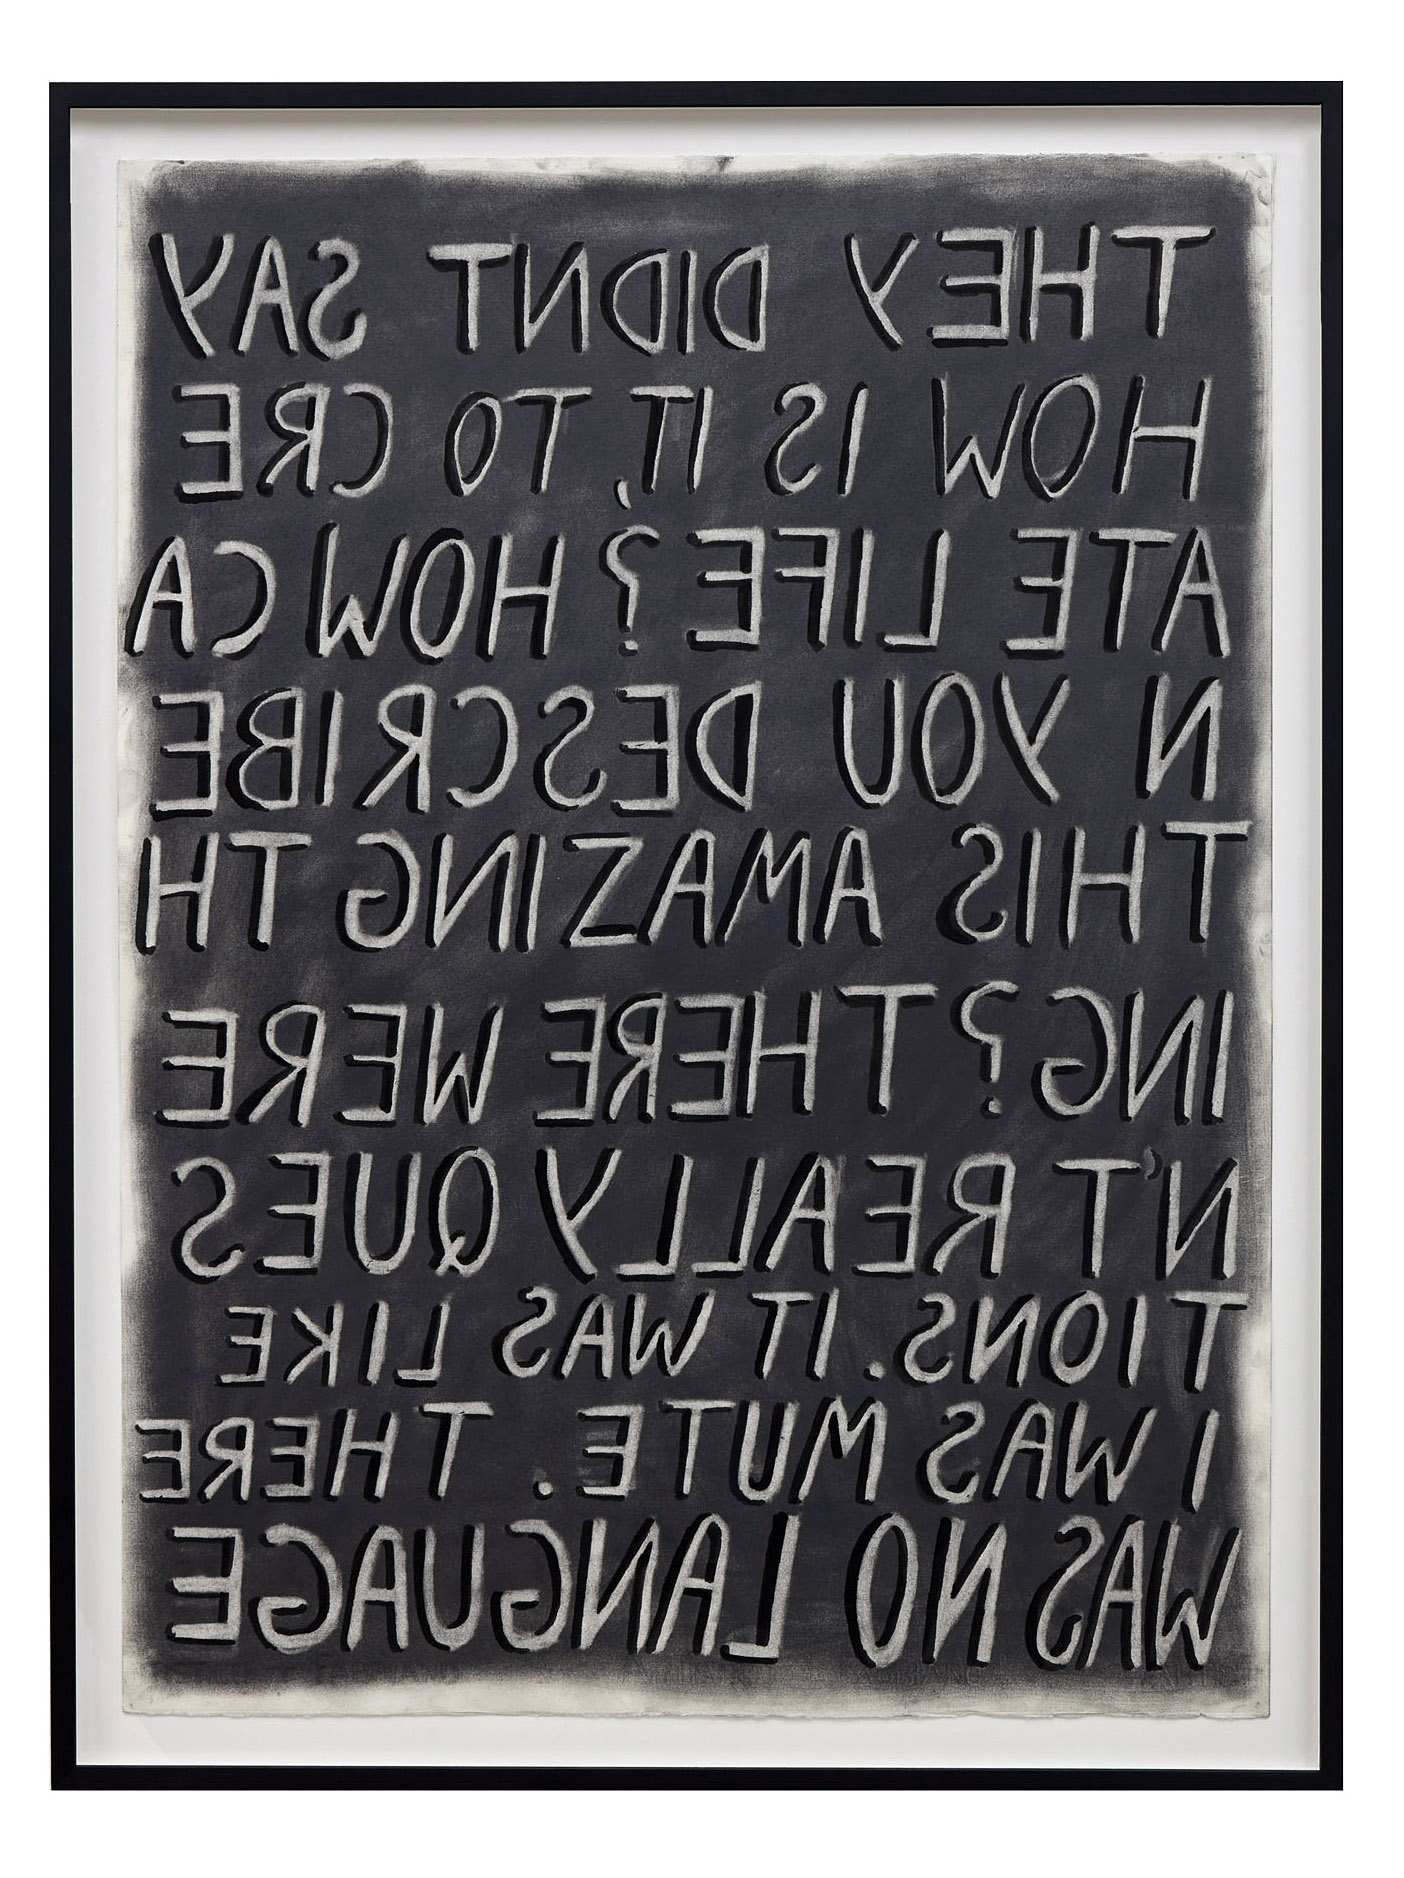 THEY DIDNT SAY
HOW IS IT, TO CRE
ATE LIFE? HOW CA
N YOU DESCRIBE
THIS AMAZING TH
ING? THERE WERE
N'T REALLY QUES
TIONS. IT WAS LIKE
I WAS MUTE. THERE
WAS NO LANGUAGE